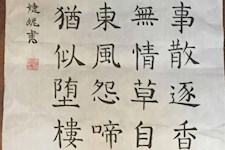 事散逐香
無情草自
東風怨啼
猶似堕樓
婕妮書